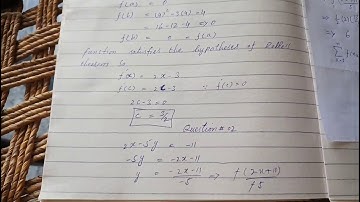 f(b) = (4)² - 3(4) - 4
= 16 - 12 - 4 ⇒ 0
f(b) = 0 = f(a)
function satisfies the hypotheses of Rolle's
theorem so
f(x) = 2x - 3
f'(c) = 2c - 3 ∵ f'(c) = 0
2c - 3 = 0
c = 3/2
Question # 02
2x - 5y = -11
-5y = -2x - 11
y = -2x - 11 / -5 ⇒ +(2x + 11) / +5